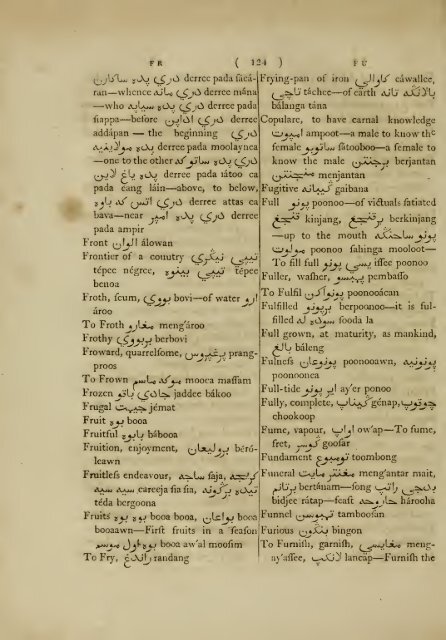 FR ( 124 ) FU
دري پده ساكارن derree pada sácá-
ran—whence دري مان derree mána
—who دري پده سياپه derree pada
siappa—before دري اداپن derree
addápan — the beginning دري
پده مولاينيه derree pada moolaynea
—one to the other دري پده ساتو كد
يڠ لاين derree pada sátoo ca
pada eang láin—above, to below,
دري اتس كد باوه derree attas ca
bava—near دري پده امپر derree
pada ampir
Front الوان álowan
Frontier of a country تيپي نيڭري
tépee négree, تيپي بينوه tépee
benoa
Froth, scum, بووي bovi—of water ارو
ároo
To Froth مڠارو meng'aroo
Frothy بربووي berbovi
Froward, quarrelsome, prang-
proos
To Frown موك ماسم mooca massam
Frozen جادي باكو jaddee bákoo
Frugal جيمت jémat
Fruit بوه booa
Fruitful ببوه bábooa
Fruition, enjoyment, beró-
leawn
Fruitless endeavour, ساج saja,
سيه سيه careeja sia sia,
تيده بركونه téda bergoona
Fruits بوه بوه booa booa, booa
booaawn—First fruits in a season
بوه اول موسم booa aw'al moosim
To Fry, رندڠ randang
Frying-pan of iron كاوالي cáwallee,
تاچي táchee—of earth بالاڠ تانه
bálanga tána
Copulare, to have carnal knowledge
امپوت ampoot—a male to know the
female ساتوبو sátooboo—a female to
know the male برجنتن berjantan
منجنتن menjantan
Fugitive گيبانه gaibana
Full پونو poonoo—of victuals satiated
كنجڠ kinjang, بركنجڠ berkinjang
—up to the mouth پونو ساهڠ
مولوت poonoo sahinga mooloot—
To fill full يسي پونو issee poonoo
Fuller, washer, pembasso
To Fulfil پونوكن poonooácan
Fulfilled برپونو berpoonoo—it is ful-
filled سوده له sooda la
Full grown, at maturity, as mankind,
بالغ báleng
Fulness پونوعان poonooawn, پونونيه
poonoonea
Full-tide اير پونو ay'er ponoo
Fully, complete, گيناپ génap, چوكوپ
chookoop
Fume, vapour, اواپ ow'ap—To fume,
fret, گوسر goosar
Fundament تومبوڠ toombong
Funeral مڠنتر مايت meng'antar mait,
برتانم bertánam—song
بيدجي راتپ bidjee rátap—feast هاروهه hárooha
Funnel تمبوسن tamboosan
Furious بيڠن bingon
To Furnish, garnish, مڠايسي meng-
ay'assee, لنچڤ lancap—Furnish the